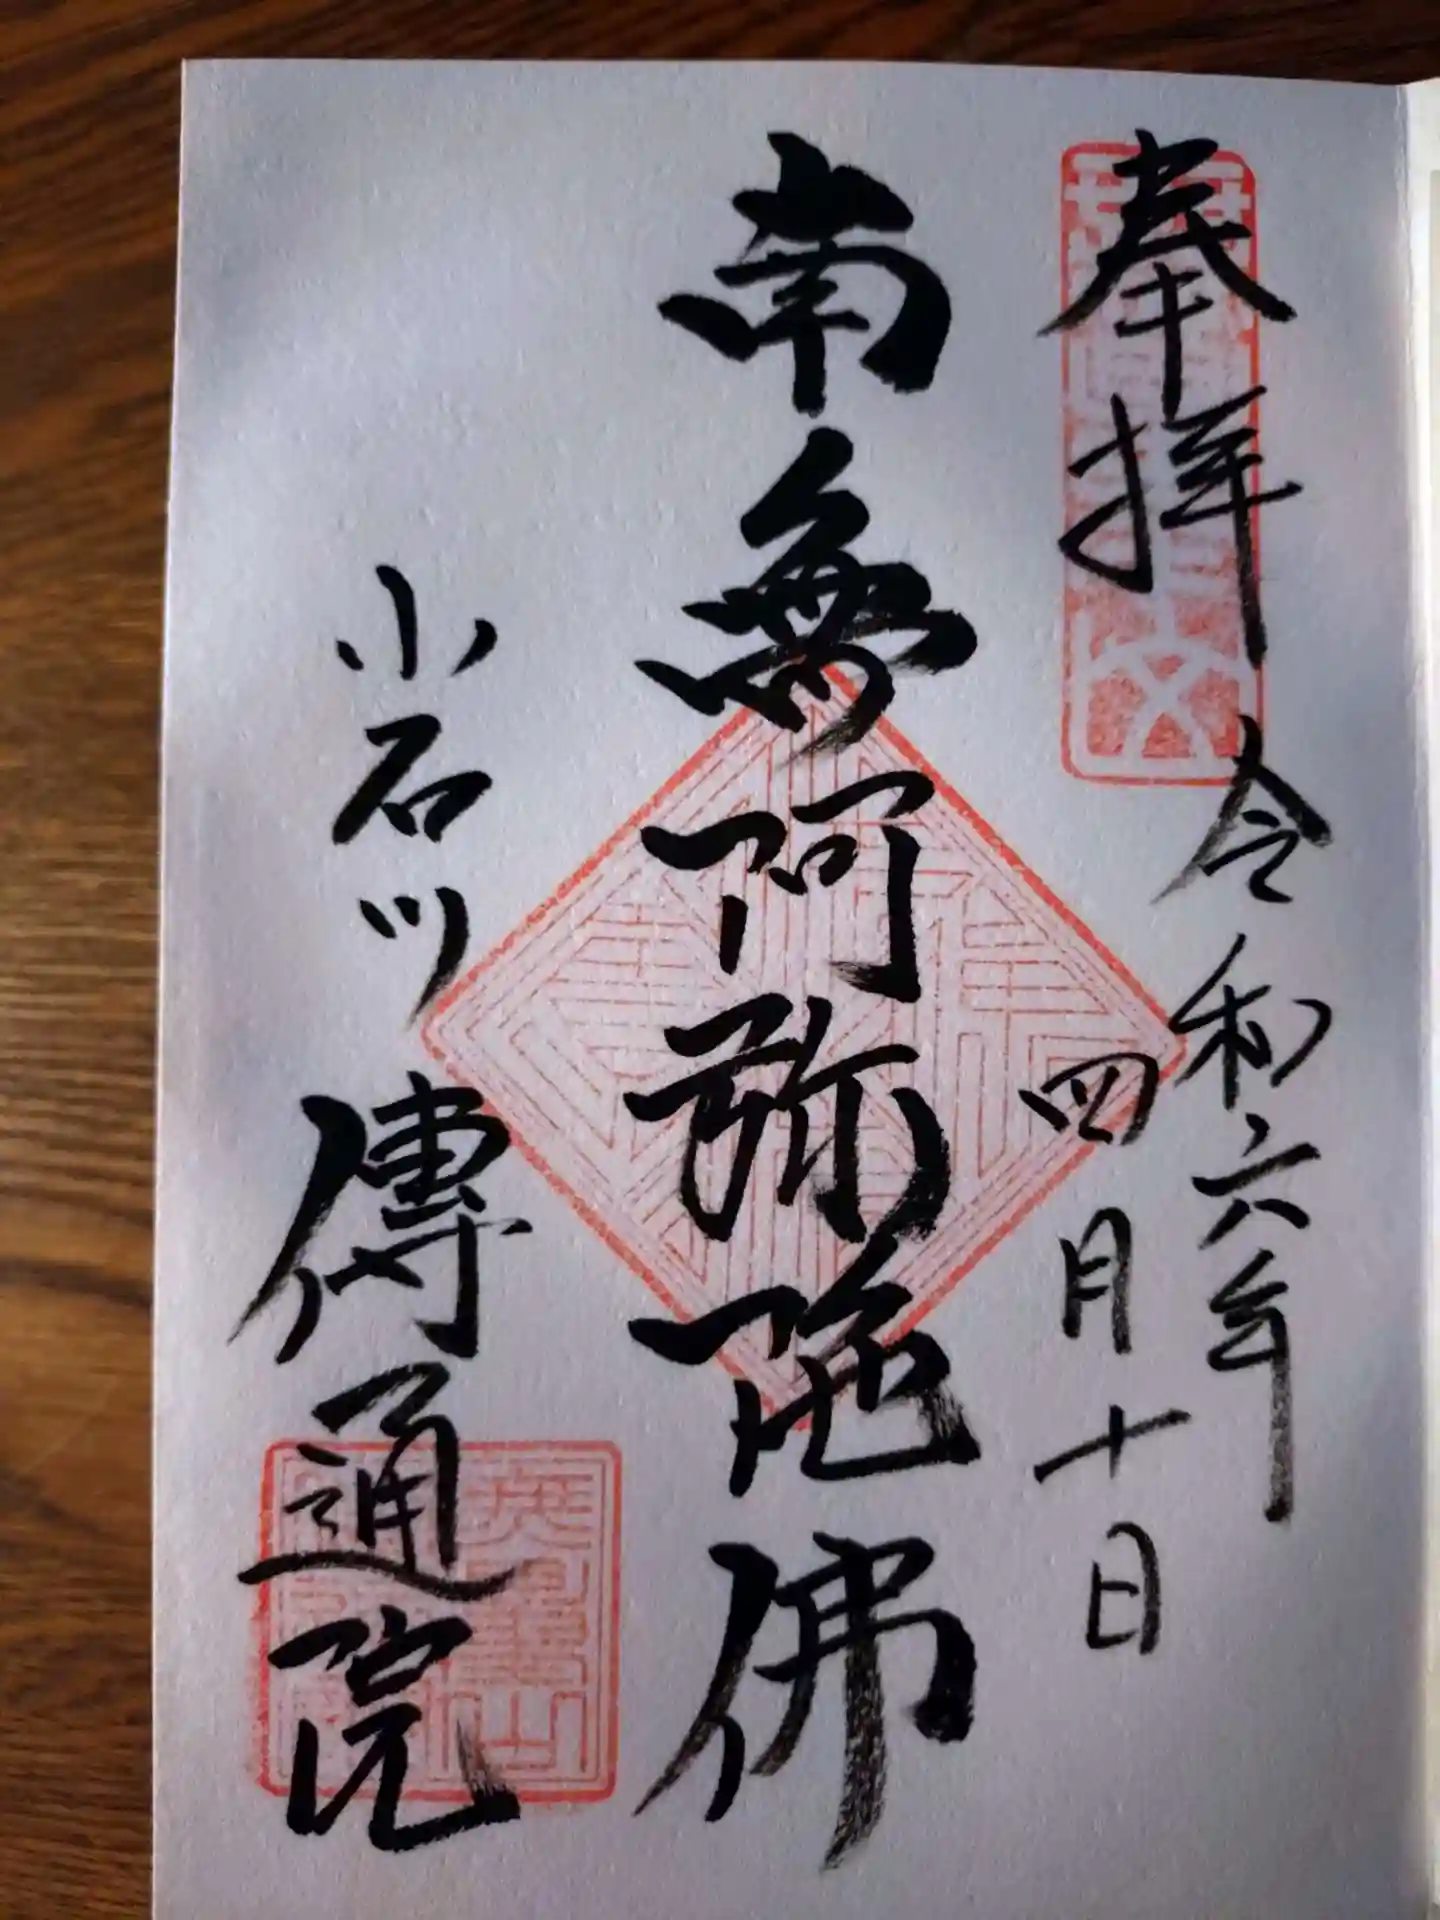 奉拝
令和六年
四月十日
南無阿弥陀佛
小石川
傳通院